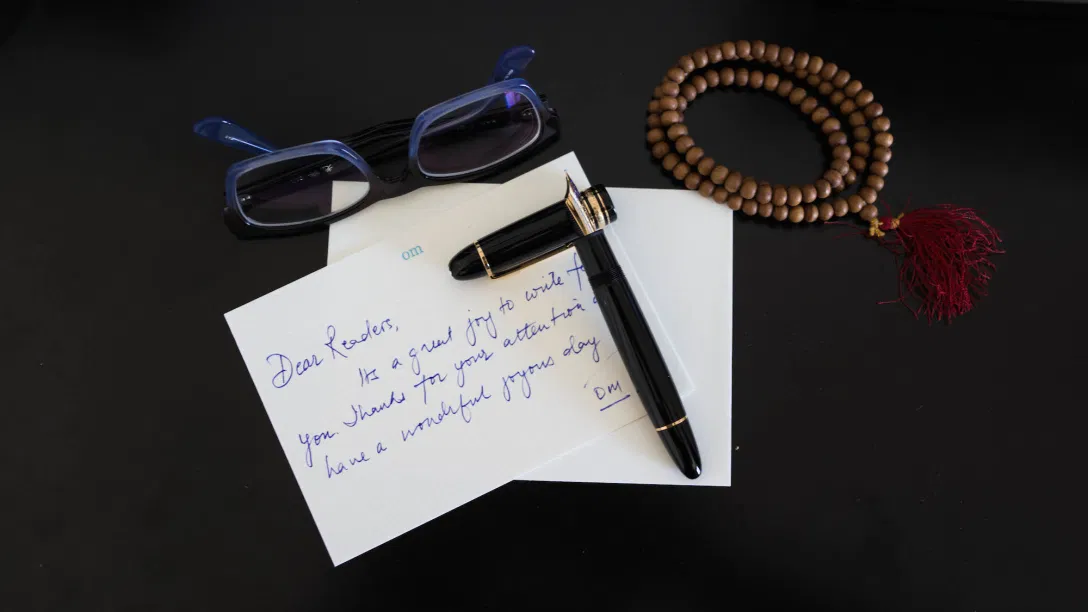 om
Dear Readers,
Its a great joy to write fo
you. Thanks for your attention
have a wonderful joyous day
OM